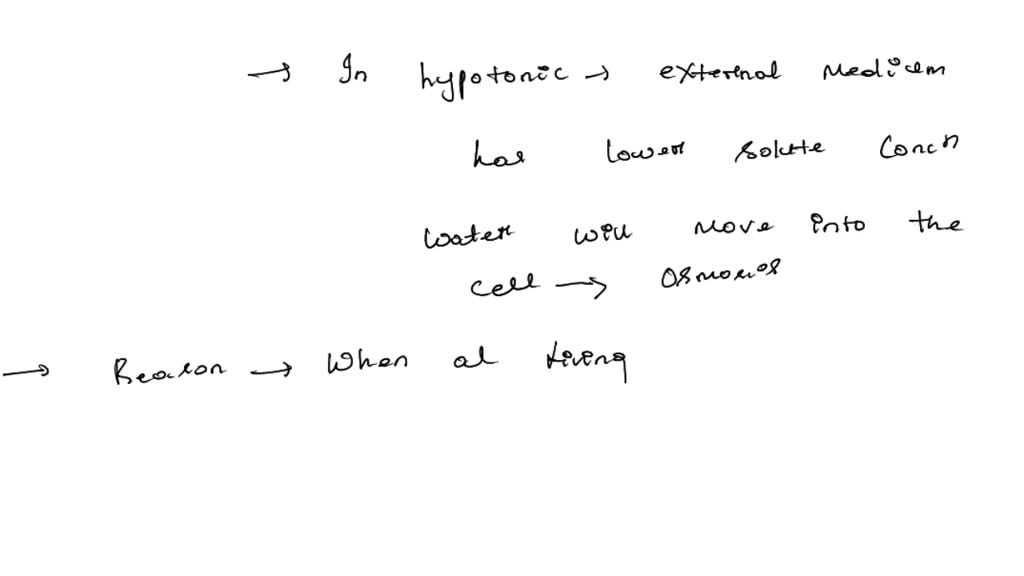 → In hypotonic → external medium
has lower solute Concn
water will move into the
cell → Osmosis
→ Reason → When a living